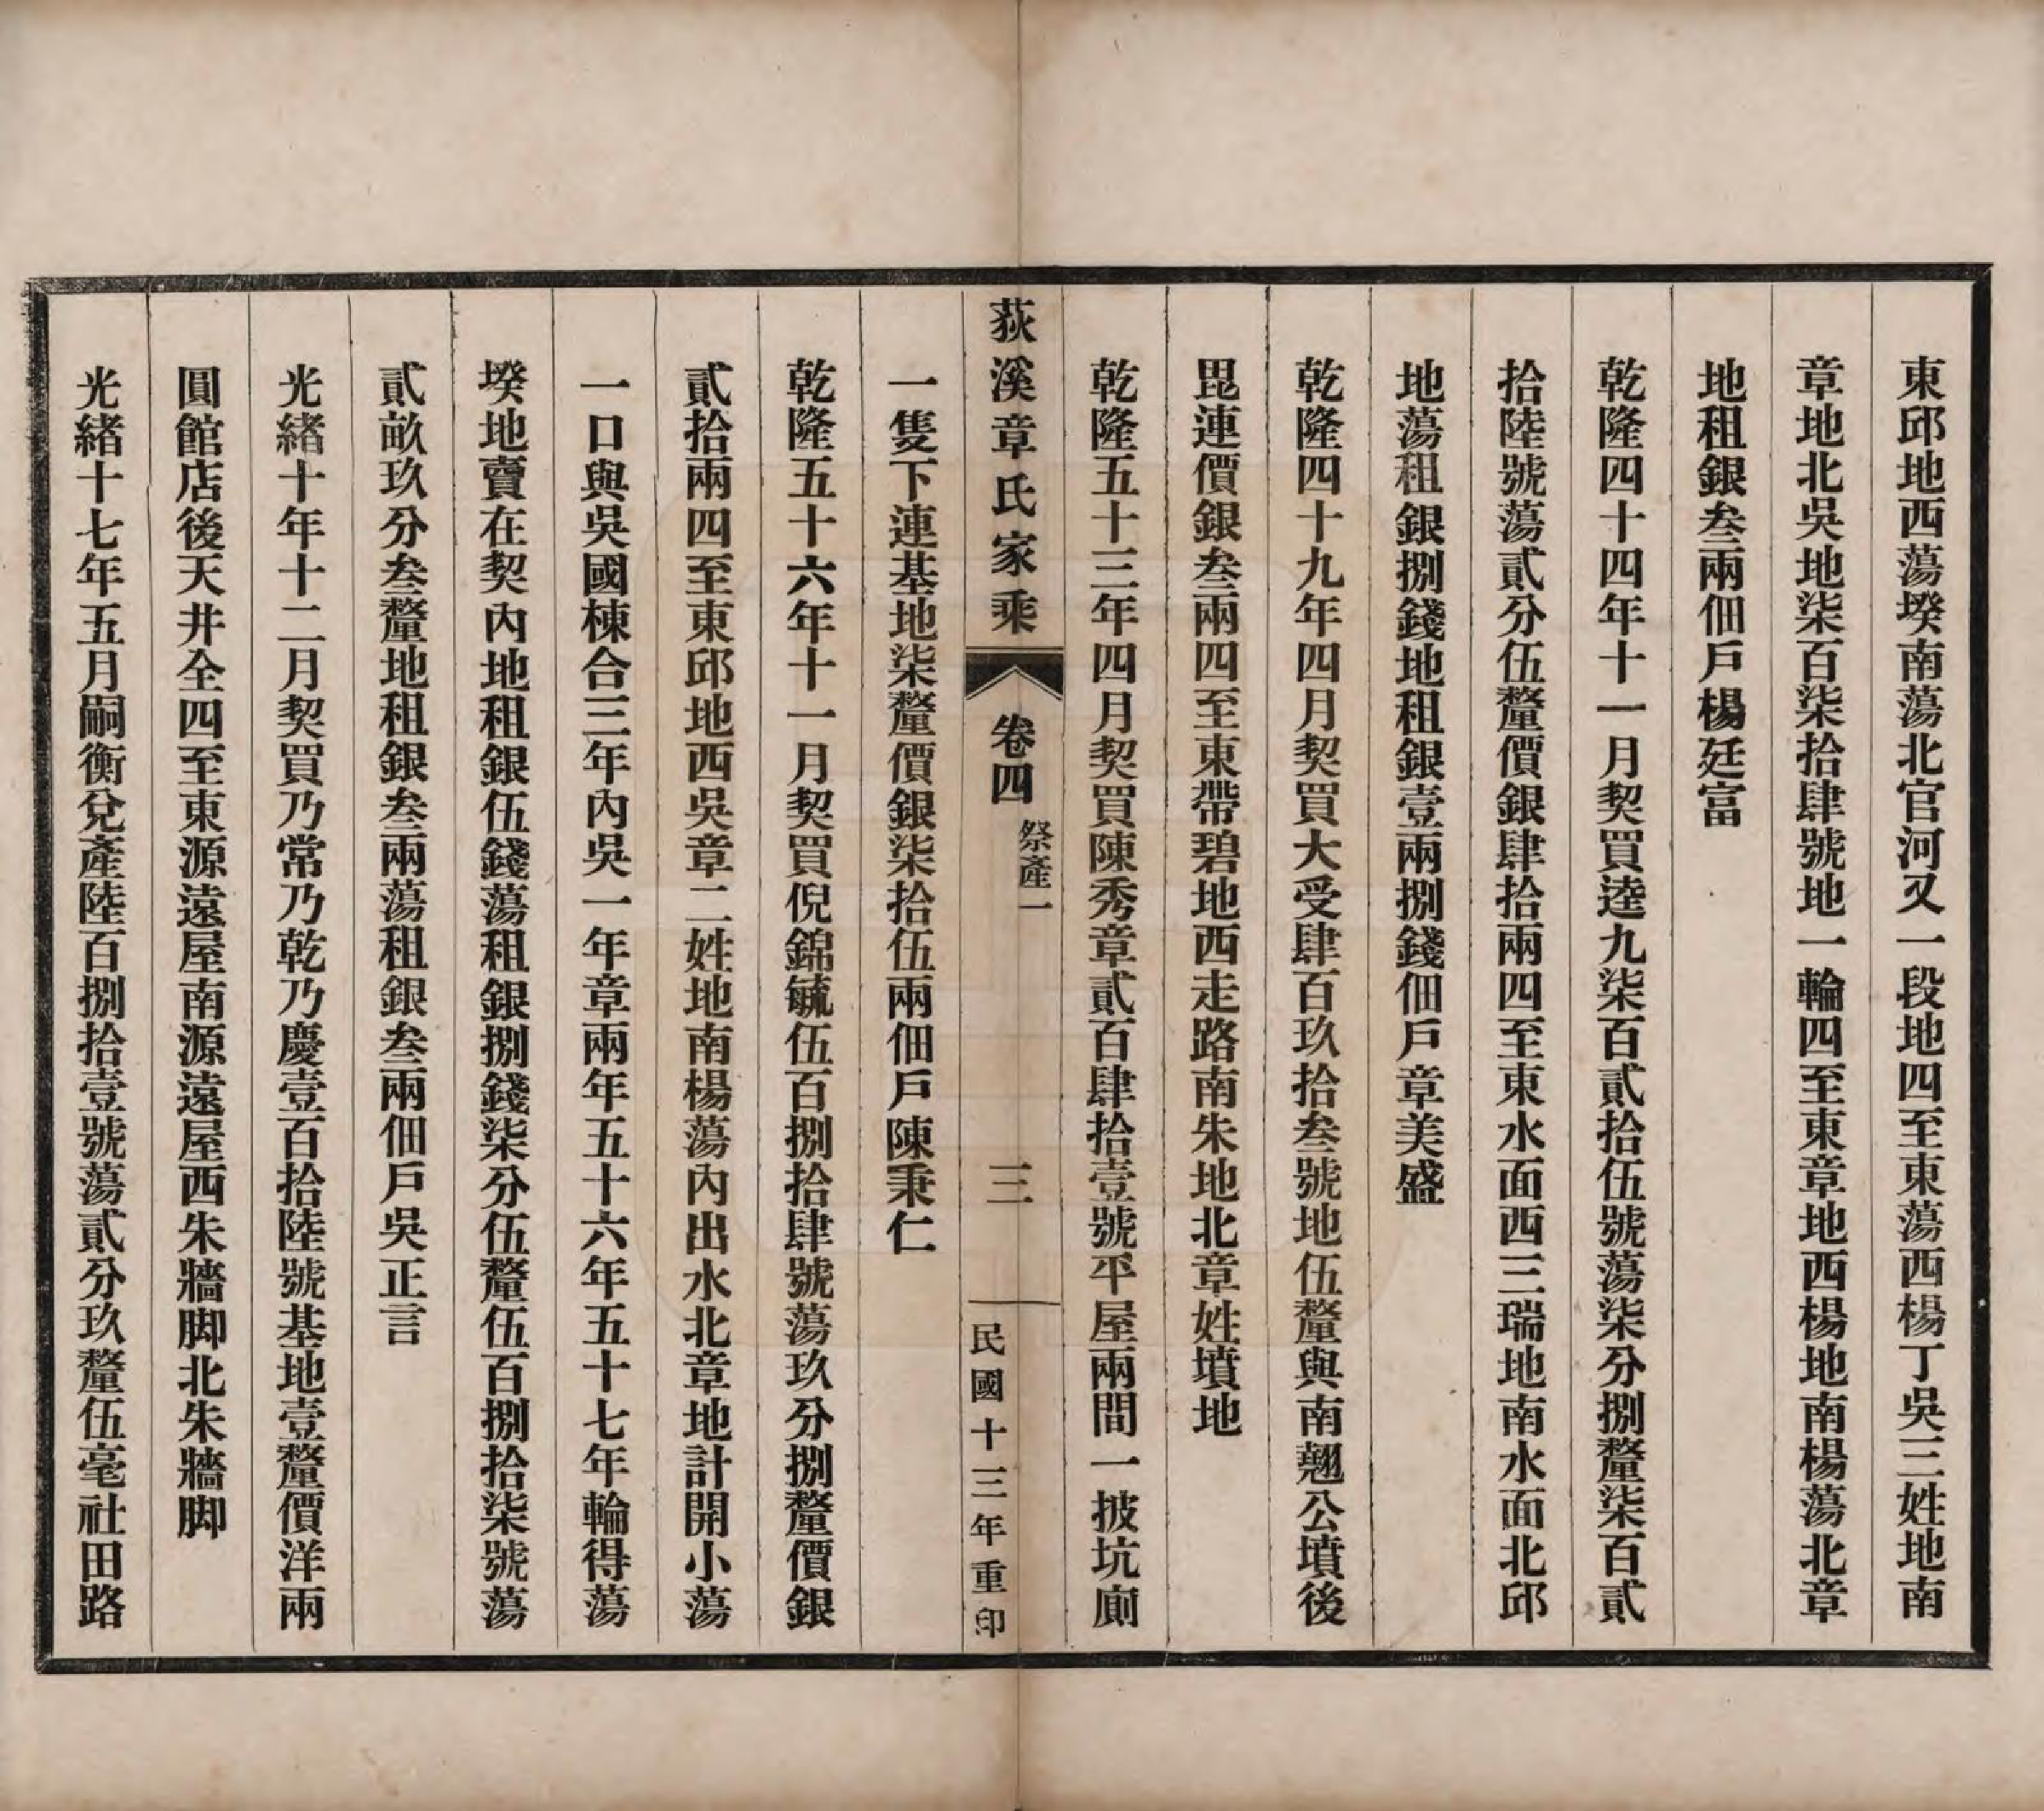 東邱地西蕩堗南蕩北官河又一段地四至東蕩西楊丁吳三姓地南
章地北吳地柒百柒拾肆號地一輪四至東章地西楊地南楊蕩北章
地租銀叁兩佃戶楊廷富
乾隆四十四年十一月契買逵九柒百貳拾伍號蕩柒分捌釐柒百貳
拾陸號蕩貳分伍釐價銀肆拾兩四至東水面西三瑞地南水面北邱
地蕩租銀捌錢地租銀壹兩捌錢佃戶章美盛
乾隆四十九年四月契買大受肆百玖拾叁號地伍釐與南翹公墳後
毘連價銀叁兩四至東帶碧地西走路南朱地北章姓墳地
乾隆五十三年四月契買陳秀章貳百肆拾壹號平屋兩間一披坑廁
荻溪章氏家乘
卷四
祭產一
三
民國十三年重印
一隻下連基地柒釐價銀柒拾伍兩佃戶陳秉仁
乾隆五十六年十一月契買倪錦毓伍百捌拾肆號蕩玖分捌釐價銀
貳拾兩四至東邱地西吳章二姓地南楊蕩內出水北章地計開小蕩
一口與吳國棟合三年內吳一年章兩年五十六年五十七年輪得蕩
堗地賣在契內地租銀伍錢蕩租銀捌錢柒分伍釐伍百捌拾柒號蕩
貳畝玖分叁釐地租銀叁兩蕩租銀叁兩佃戶吳正言
光緒十年十二月契買乃常乃乾乃慶壹百拾陸號基地壹釐價洋兩
圓館店後天井全四至東源遠屋南源遠屋西朱牆脚北朱牆脚
光緒十七年五月嗣衡兌產陸百捌拾壹號蕩貳分玖釐伍毫社田路